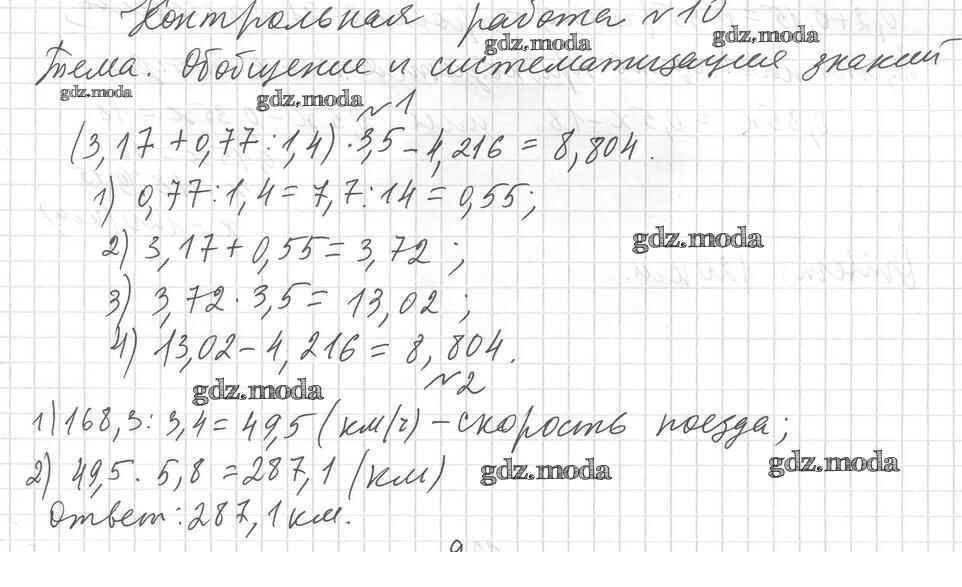 Контрольная работа №10
gdz.moda gdz.moda
Тема. Обобщение и систематизация знаний
gdz.moda gdz.moda
№1
(3,17+0,77:1,4)·3,5-4,216=8,804.
1) 0,77:1,4=7,7:14=0,55;
2) 3,17+0,55=3,72;
gdz.moda
3) 3,72·3,5=13,02;
4) 13,02-4,216=8,804.
gdz.moda
№2
1) 168,3:3,4=49,5(км/ч)-скорость поезда;
2) 49,5·5,8=287,1(км)
gdz.moda gdz.moda
Ответ:287,1 км.